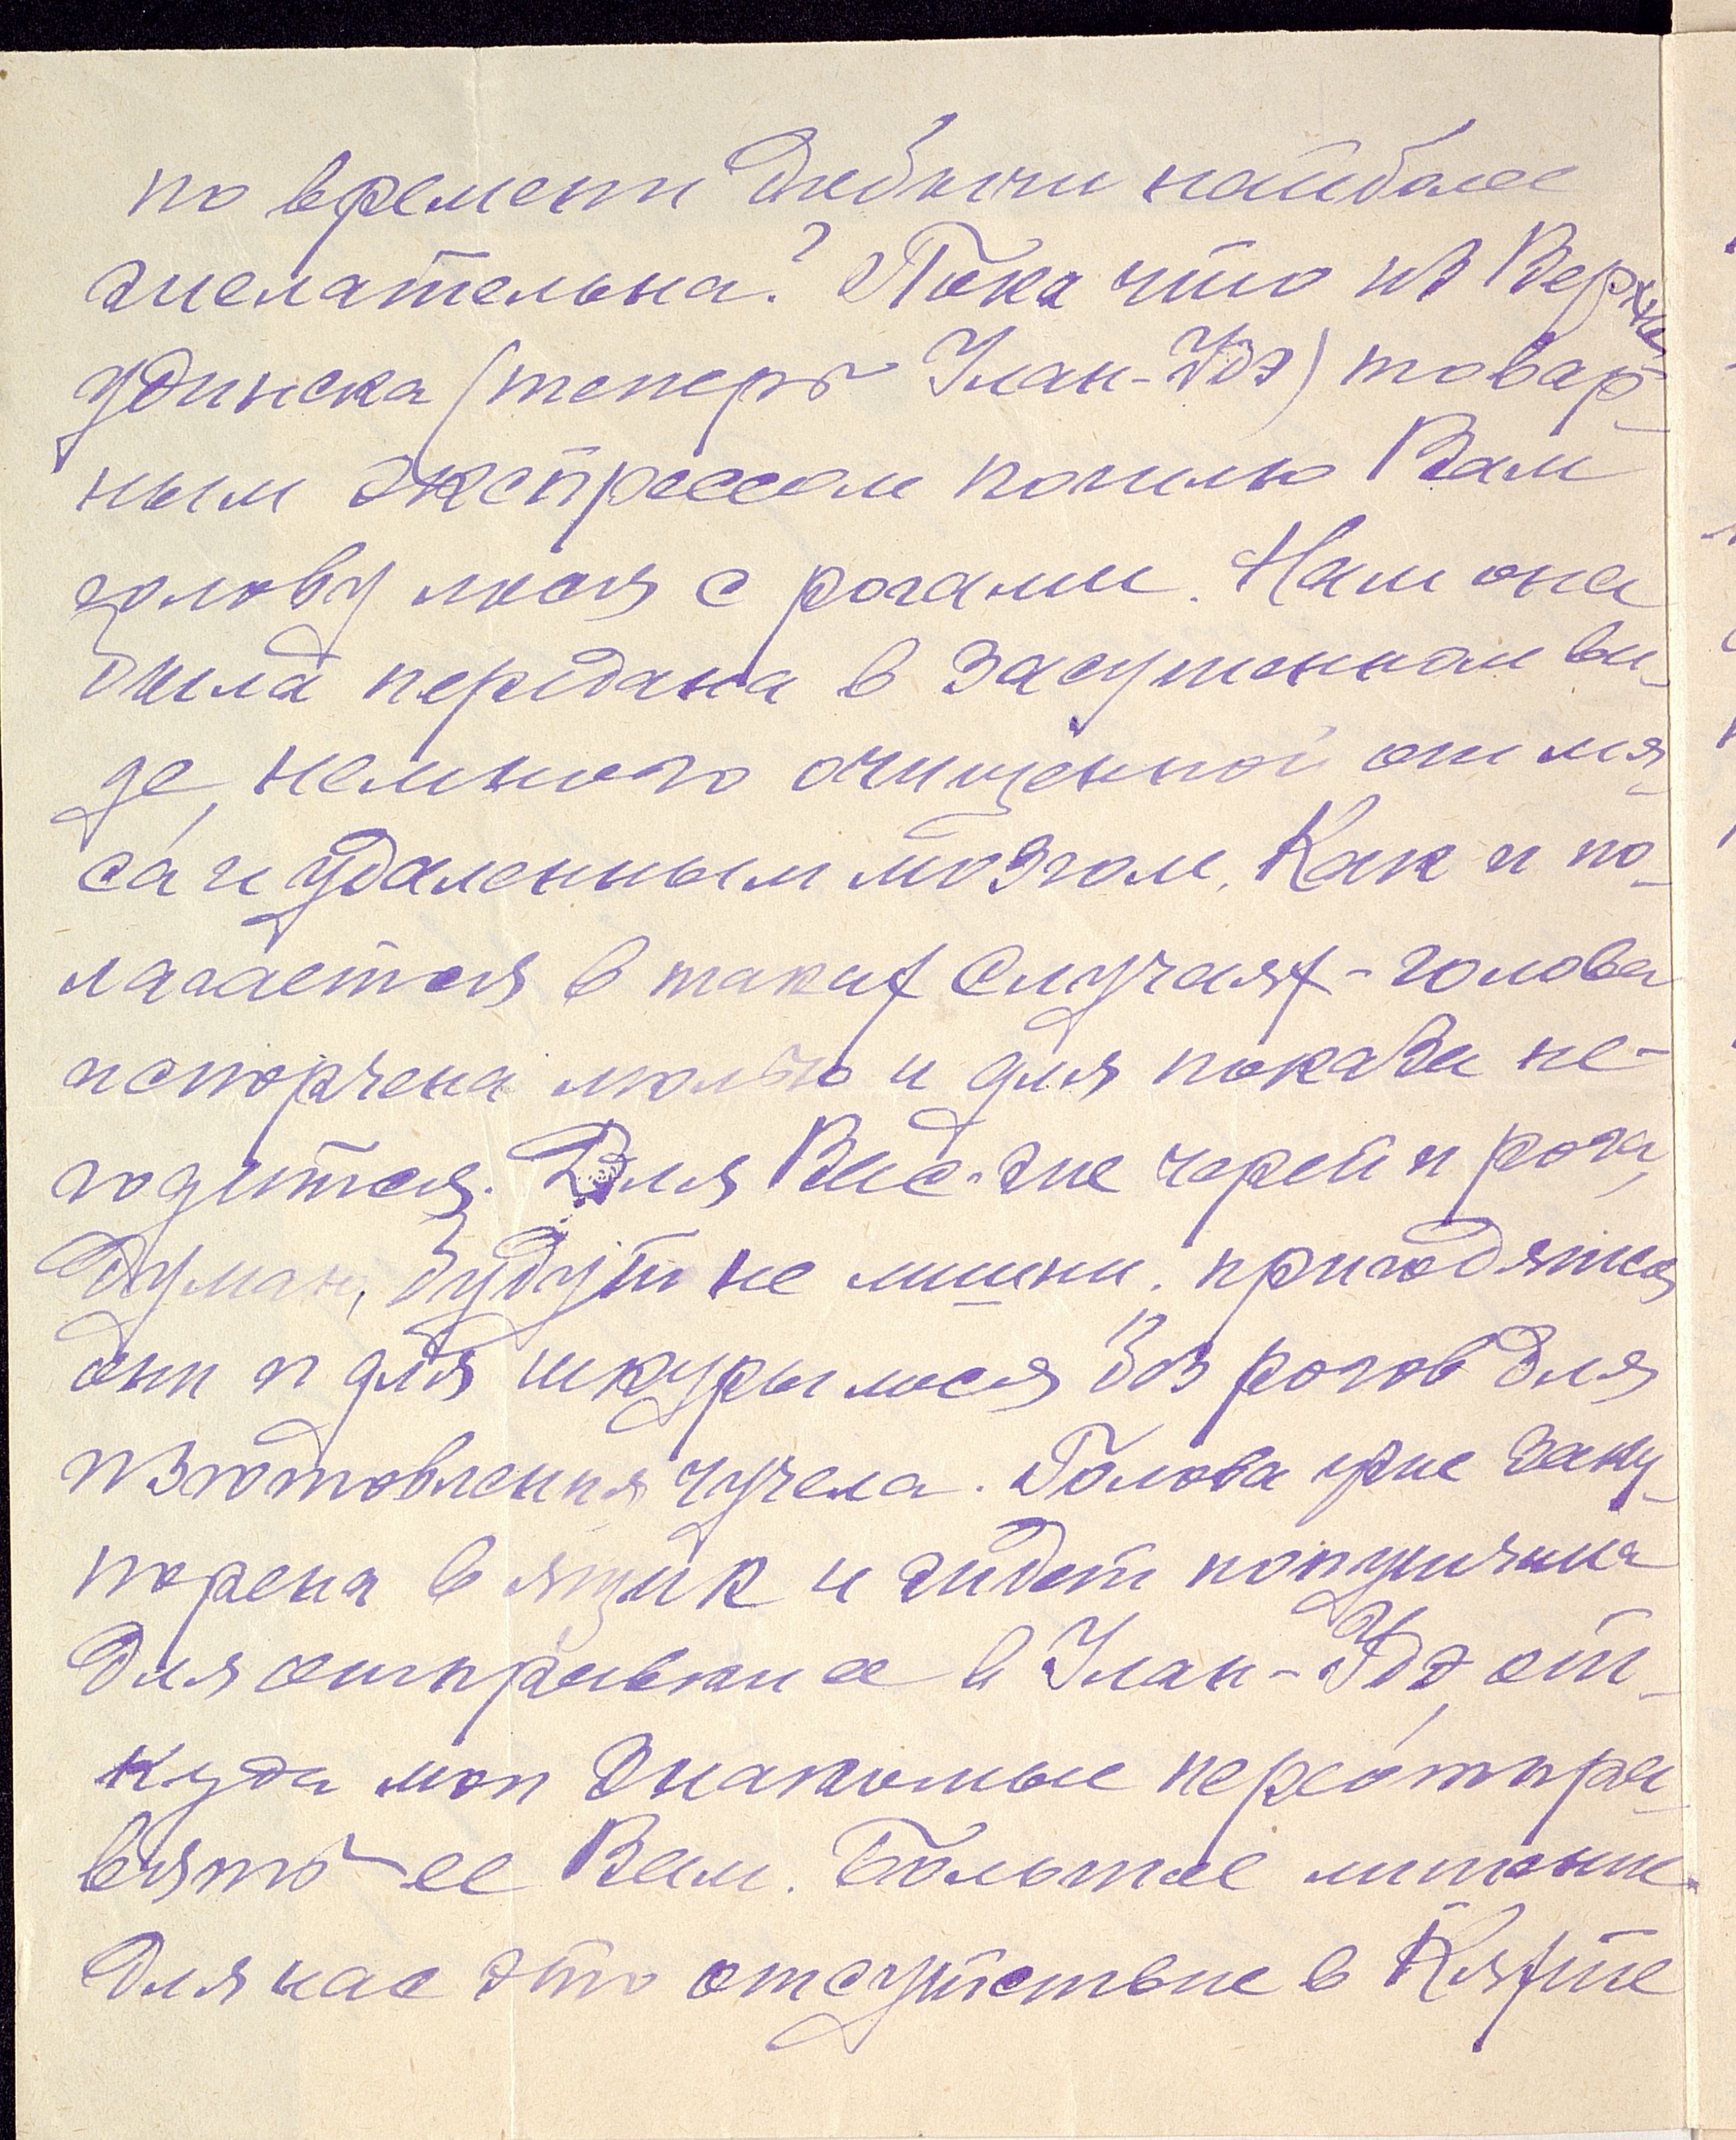 по времени добычи наиболее
желательна? Пока что из Верхне-
удинска (теперь Улан-Удэ) товар-
ным экспрессом пошлю Вам
голову лося с рогами. Нам она
была передана в засушенном ви-
де, немного очищенной от мя-
са и удаленным мозгом. Как и по-
лагается в таких случаях - голова
испорчена молью и для показа не-
годится. Для Вас же череп и рога,
думаю, будут не лишни. пригодятся
они и для шкуры лося без рогов для
изготовления чучела. Голова уже заку-
порена в ящик и ждет попутчика
для отправки ее в Улан-Удэ, от-
куда мои знакомые переотпра-
вять ее Вам. Большое лишение
для нас это отсутствие в Кяхте